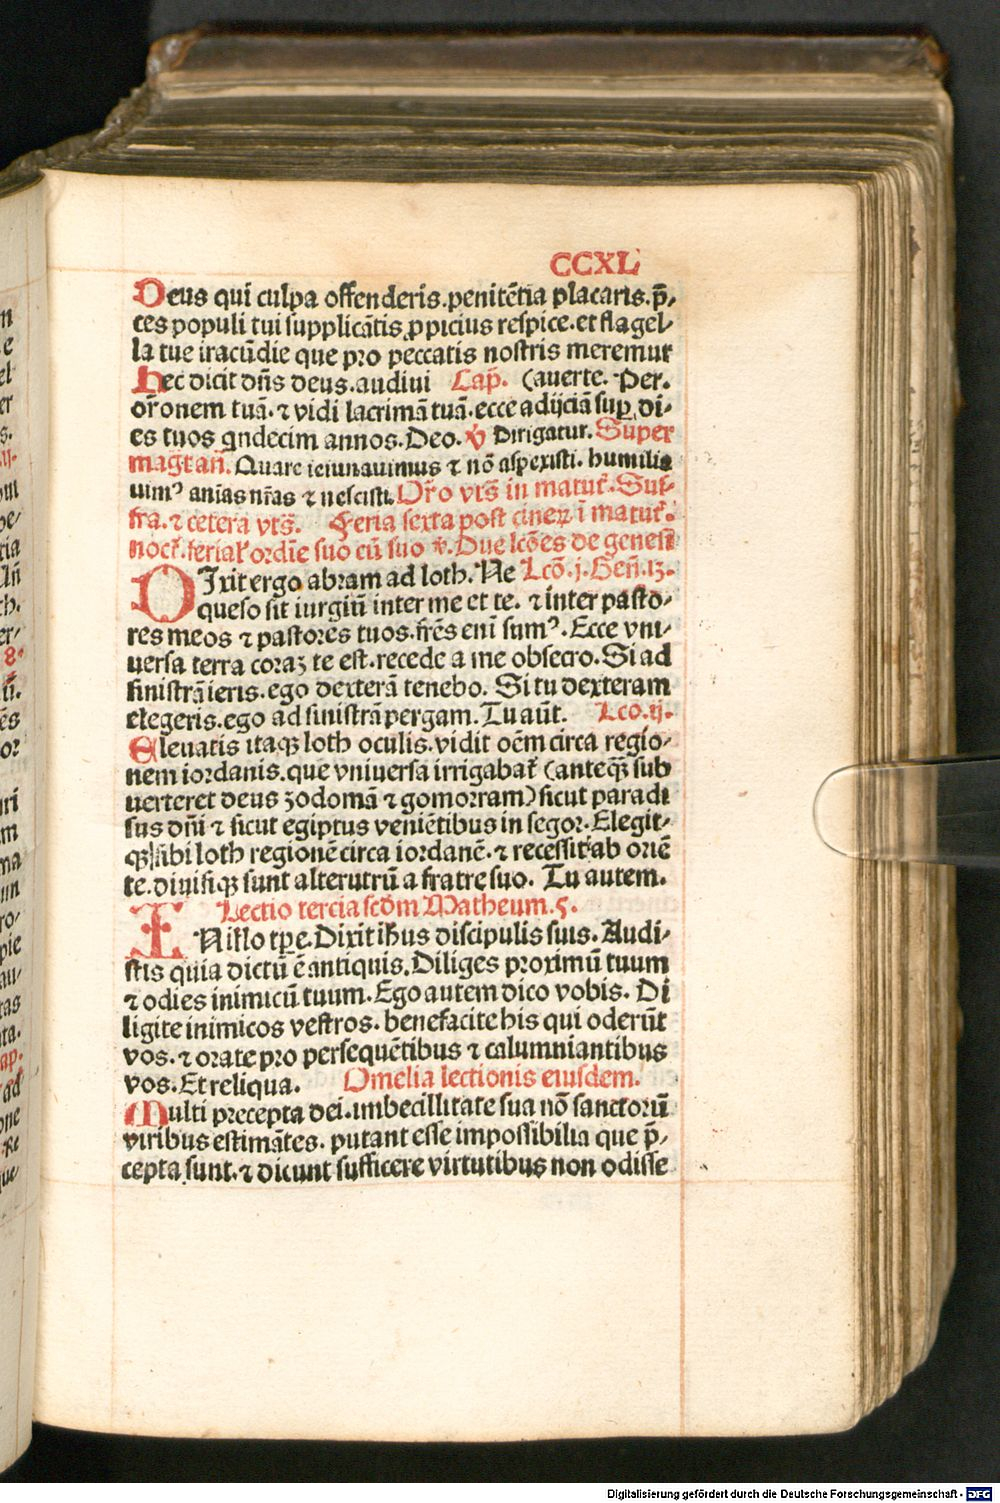 CCXL
Deus qui culpa offenderis.penitẽtia placaris.p̃⸗
ces populi tui supplicãtis ꝓpicius respice.et flagel⸗
la tue iracũdie que pro peccatis nostris meremur
Hec dicit dñs deus.audiui Cap̃. (auerte. Per.
or̃onem tuã.⁊ vidi lacrimã tuã.ecce adijciã suꝑ di⸗
es tuos qndecim annos.Deo. ꝟ Dirigatur. Super
magt̃ añ. Quare ieiunauimus ⁊ nõ aspexisti. humilia
uimꝰ anĩas nr̃as ⁊ nescisti. Or̃o vts̃ in matut̃. Suf⸗
fra. ⁊ cetera vts̃. Feria sexta post cineꝝ i matut̃.
noct̃.ferial̃ ordĩe suo cũ suo ꝟ. Due lcões de genesi
DIxit ergo abram ad loth. Ne Lcõ.j. Geñ.13.
queso sit iurgiũ inter me et te. ⁊ inter pasto⸗
res meos ⁊ pastores tuos.fr̃es eni̅ sumꝰ. Ecce vni⸗
uersa terra coraꝫ te est.recede a me obsecro. Si ad
sinistrã ieris.ego dexterã tenebo. Si tu dexteram
elegeris.ego ad sinistrã pergam. Tu aũt. Lco.ij.
Eleuatis itaqꝫ loth oculis.vidit oẽm circa regio⸗
nem iordanis.que vniuersa irrigabat̃ (anteqꝫ̃ sub
uerteret deus zodomã ⁊ gomorram) sicut paradi
sus dñi ⁊ sicut egiptus veniẽtibus in segor. Elegit⸗
qꝫ sibi loth regionẽ circa iordanẽ.⁊ recessit ab oriẽ
te.diuisiqꝫ sunt alterutrũ a fratre suo. Tu autem.
Lectio tercia scd̃m Matheum.5.
IN illo tꝑe. Dixit ihūs discipulis suis. Audi⸗
stis quia dictũ ẽ antiquis. Diliges proximũ tuum
⁊ odies inimicũ tuum. Ego autem dico vobis. Di
ligite inimicos vestros. benefacite his qui oderũt
vos. ⁊ orate pro persequẽtibus ⁊ calumniantibus
vos. Et reliqua. Omelia lectionis eiusdem.
Multi precepta dei.imbecillitate sua nõ sanctorũ
viribus estimãtes. putant esse impossibilia que p̃⸗
cepta sunt. ⁊ dicunt sufficere virtutibus non odisse
Digitalisierung gefördert durch die Deutsche Forschungsgemeinschaft - DFG